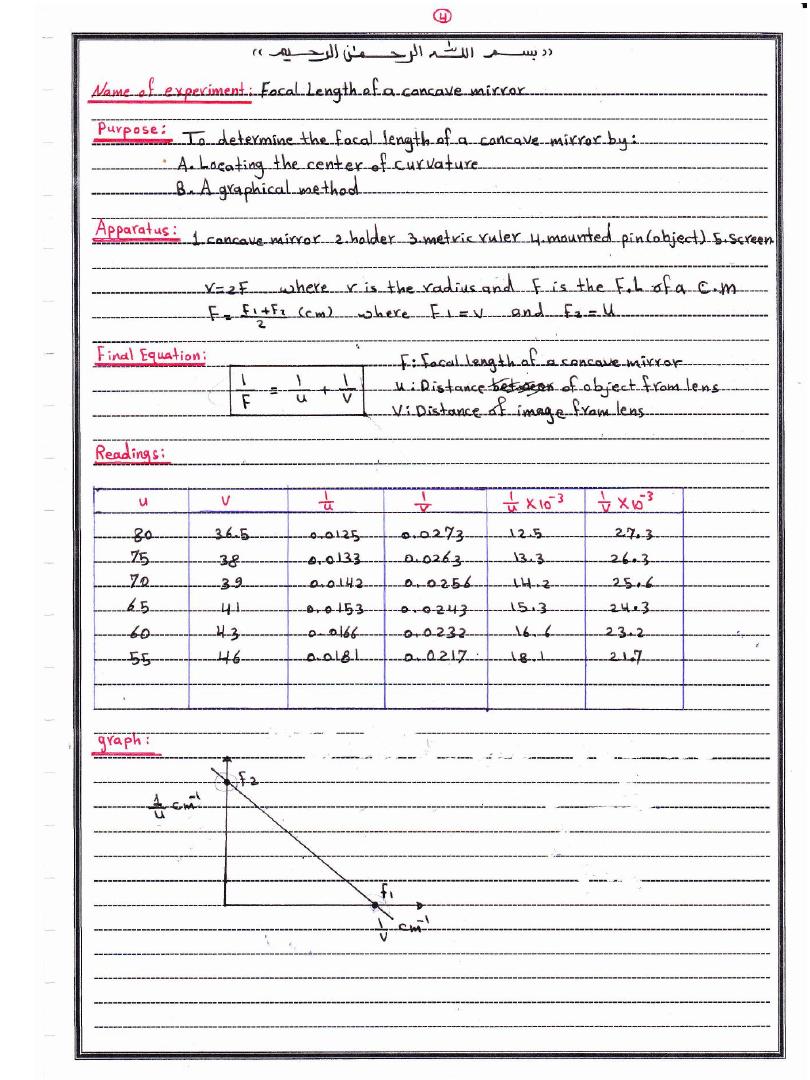 4
«بسم الله الرحمن الرحيم»
Name of experiment: Focal Length of a concave mirror
Purpose: To determine the focal length of a concave mirror by:
A. Locating the center of curvature
B. A graphical method
Apparatus: 1.concave mirror 2.holder 3.metric ruler 4.mounted pin(object) 5.screen
r=2F where r is the radius and F is the F.L of a C.m
F = F1+F2/2 (cm) where F1=v and F2=u
Final Equation: 1/F = 1/u + 1/v
F: Focal length of a concave mirror
u: Distance between of object from lens
V: Distance of image from lens
Readings:
u V 1/u 1/v 1/u ×10⁻³ 1/v ×10⁻³
80 36.5 0.0125 0.0273 12.5 27.3
75 38 0.0133 0.0263 13.3 26.3
70 39 0.0142 0.0256 14.2 25.6
65 41 0.0153 0.0243 15.3 24.3
60 43 0.0166 0.0232 16.6 23.2
55 46 0.0181 0.0217 18.1 21.7
graph:
F2
1/u cm⁻¹
f1
1/v cm⁻¹